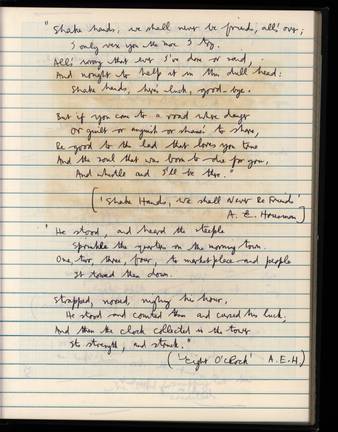 "Shake hands, we shall never be friends; all's over;
I only vex you the more I try.
All's wrong that ever I've done or said,
And nought to help it in this dull head:
Shake hands, here's luck, good-bye.
But if you come to a road where danger
Or guilt or anguish or shame's to share,
Be good to the lad that loves you true
And the soul that was born to die for you,
And whistle and I'll be there."
('Shake Hands, we shall Never Be Friends'
A. E. Housman)
"He stood, and heard the steeple
Sprinkle the quarters on the morning town.
One, two, three, four, to market-place and people
It tossed them down.
Strapped, noosed, nighing his hour,
He stood and counted them and cursed his luck;
And then the clock collected in the tower
Its strength, and struck."
('Eight O'Clock' A.E.H.)